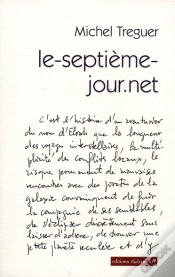 Michel Treguer
le-septième-
jour.net
C'est l'histoire d'un aventurier
du nom d'Eloah que la longueur
des voyages interstellaires, la multi
plicité de conflits locaux, le
risque permanent de mauvaises
rencontres avec des pirates de la
galaxie convainquent de fuir
la compagnie de ses semblables,
de s'éclipser discrètement sans
laisser d'adresse, de trouver une
petite planète reculée et d'y
éditions dialogues